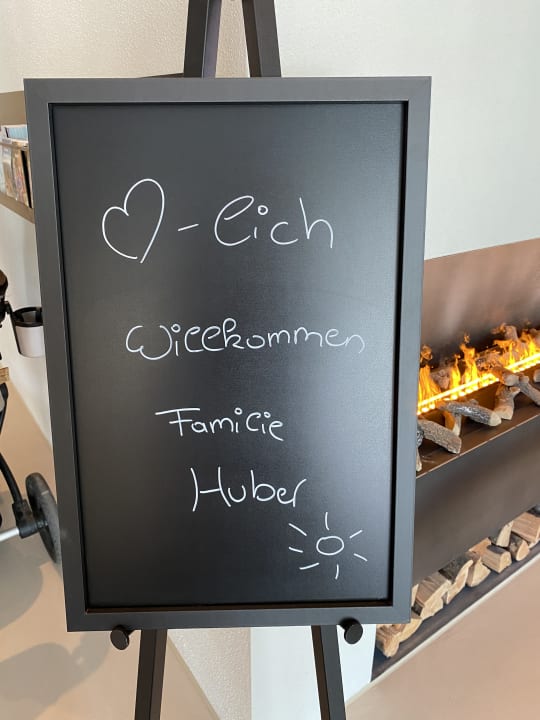 ♡-lich
Willkommen
Familie
Huber